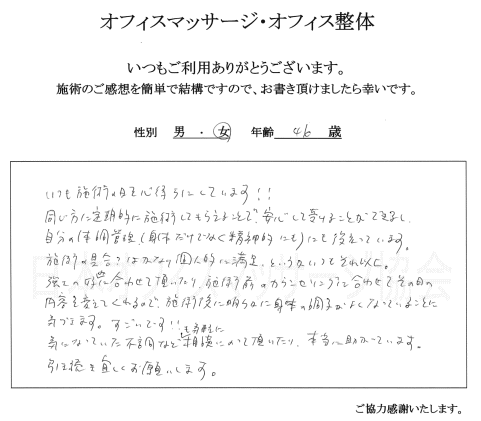 オフィスマッサージ・オフィス整体
いつもご利用ありがとうございます。
施術のご感想を簡単で結構ですので、お書き頂けましたら幸いです。
性別 男 ・ 女 年齢 46 歳
いつも施術の日を心待ちにしています!!
同じ方に定期的に施術してもらえることで、安心して受けることができるし、
自分の体調管理(身体だけでなく精神的にも)にも役立っています。
施術の具合ではかなり個人的に満足、というかいつもそれ以上。
強さの好みに合わせて頂いたり、施術前のカウンセリングに合わせてその日の
内容を変えてくれるので、施術後に明らかに身体の調子がよくなっていることに
気づきます。すごいです!!
気になっていた不調なども気軽に相談にのって頂いたり、本当に助かっています。
引き続き宜しくお願いします。
ご協力感謝いたします。